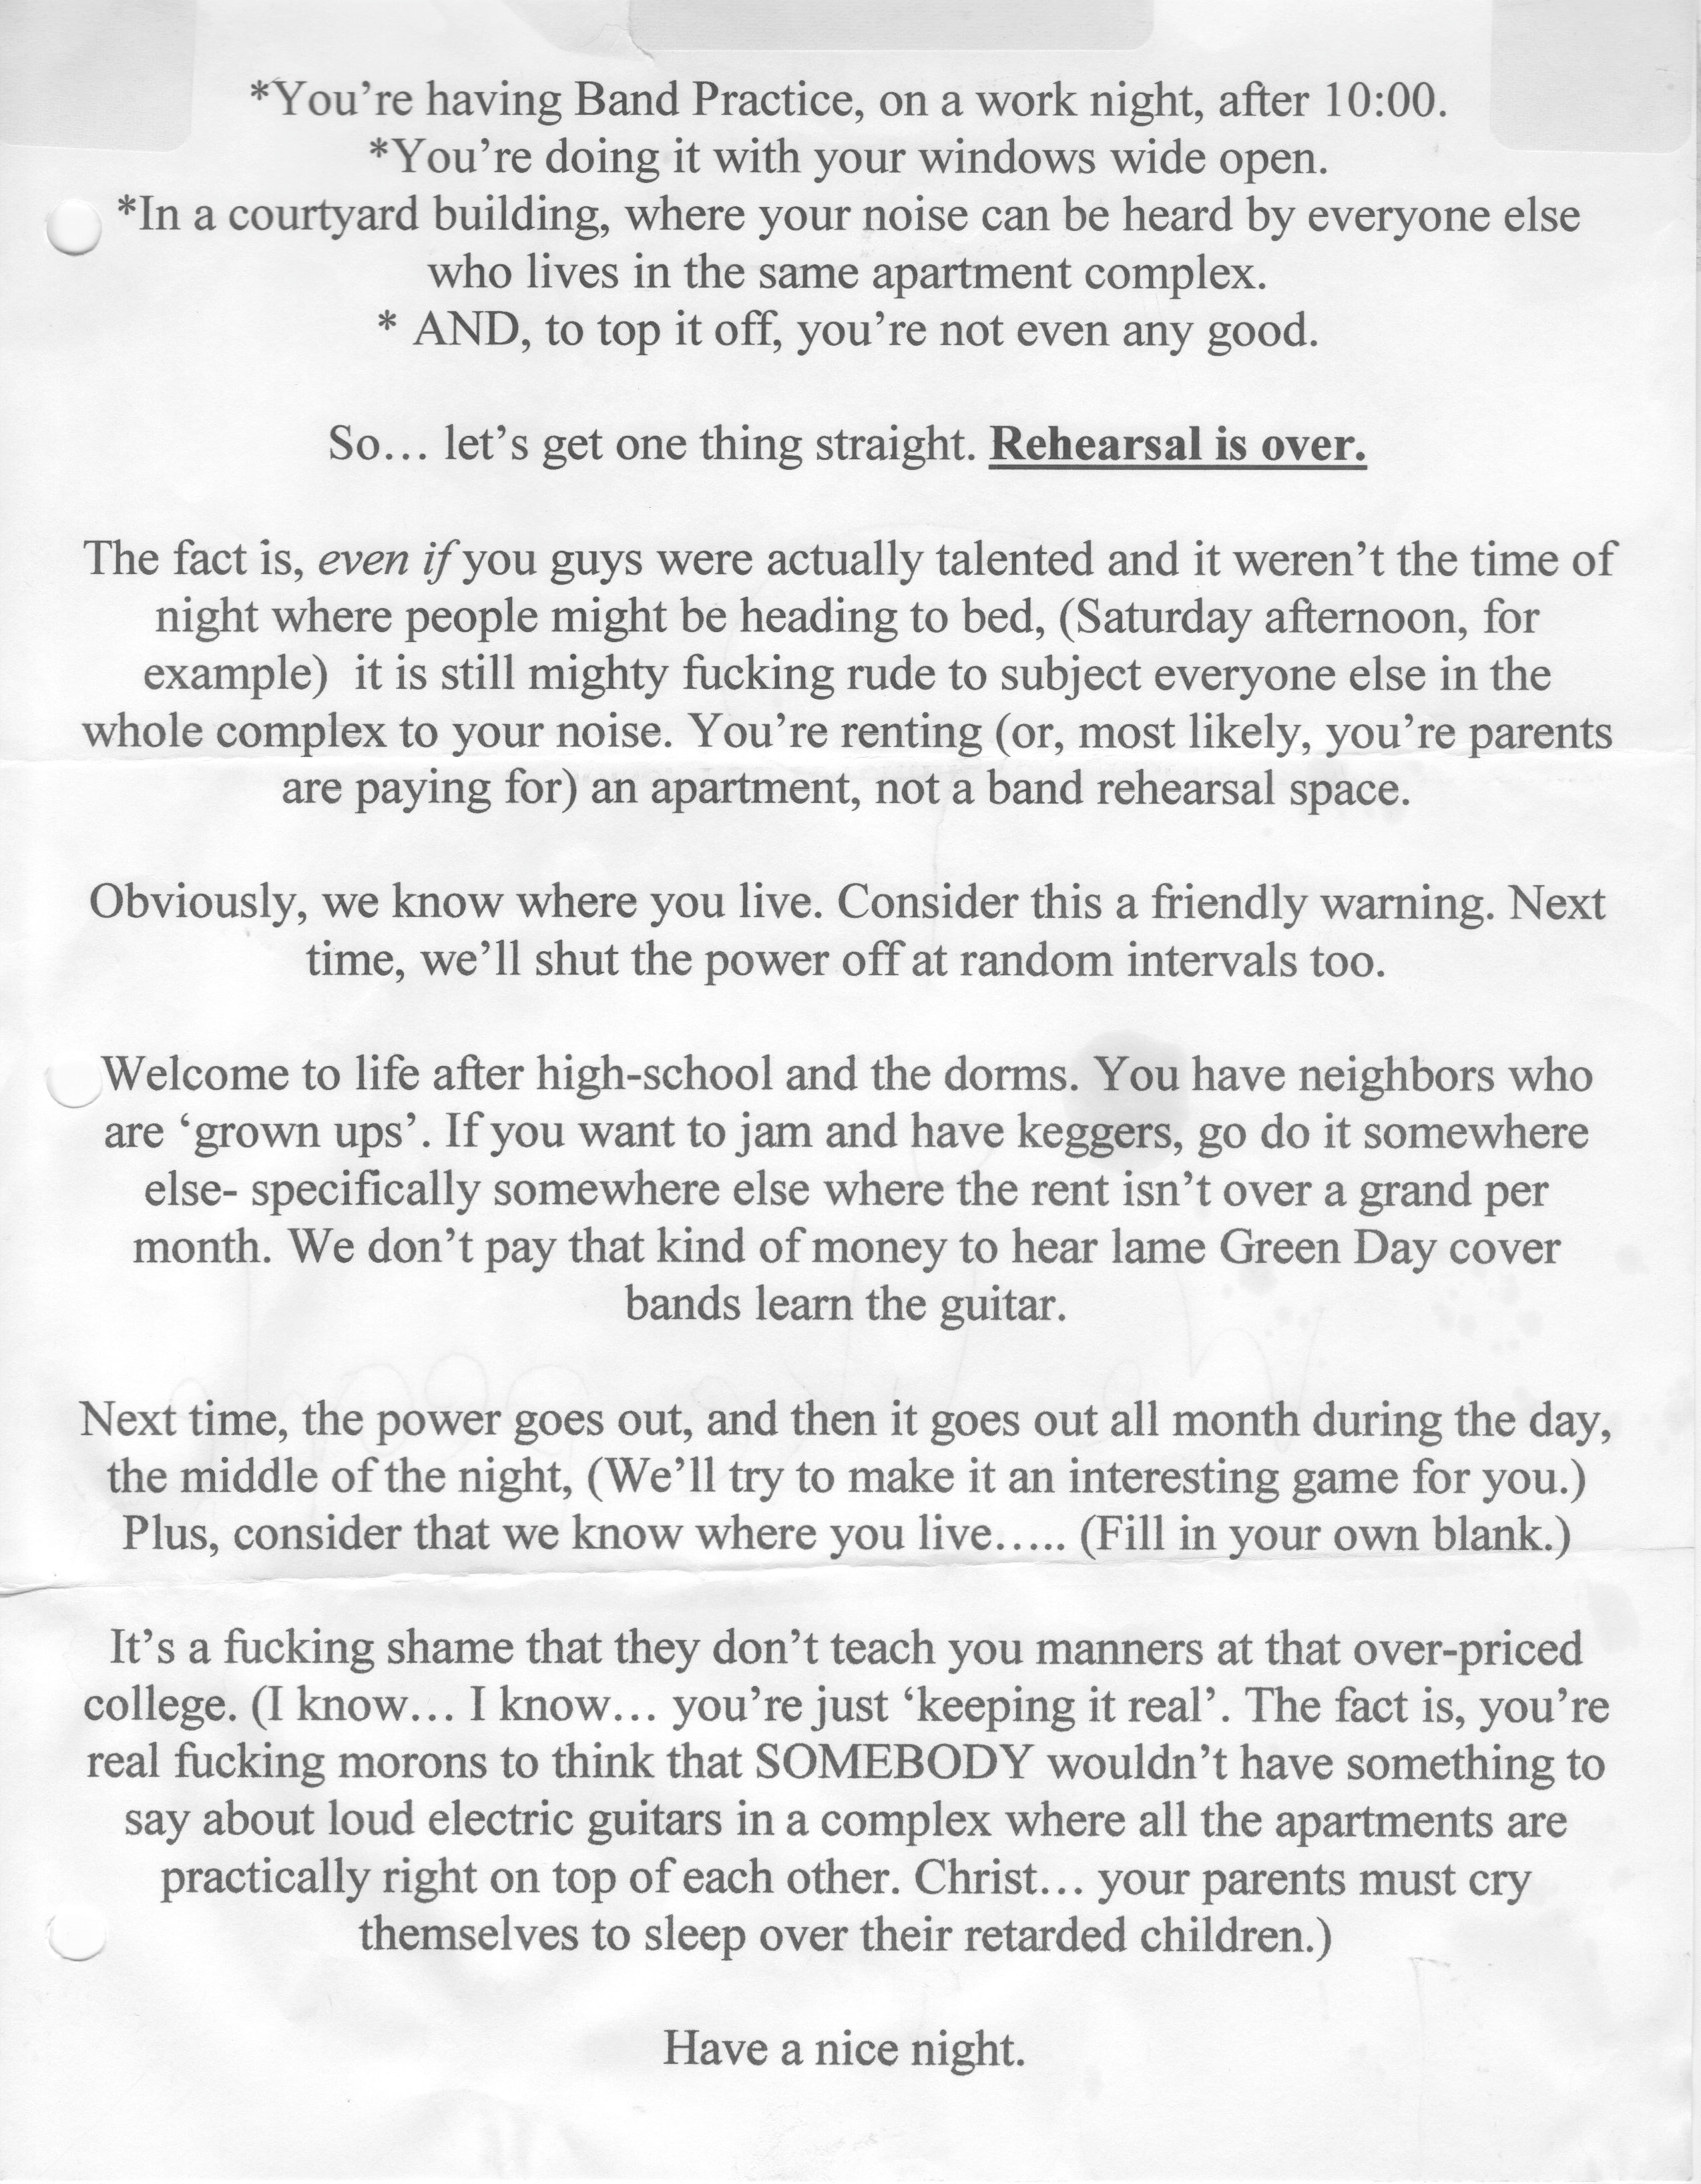 *You’re having Band Practice, on a work night, after 10:00.
*You’re doing it with your windows wide open.
*In a courtyard building, where your noise can be heard by everyone else
who lives in the same apartment complex.
* AND, to top it off, you’re not even any good.
So… let’s get one thing straight. Rehearsal is over.
The fact is, even if you guys were actually talented and it weren’t the time of
night where people might be heading to bed, (Saturday afternoon, for
example)  it is still mighty fucking rude to subject everyone else in the
whole complex to your noise. You’re renting (or, most likely, you’re parents
are paying for) an apartment, not a band rehearsal space.
Obviously, we know where you live. Consider this a friendly warning. Next
time, we’ll shut the power off at random intervals too.
Welcome to life after high-school and the dorms. You have neighbors who
are ‘grown ups’. If you want to jam and have keggers, go do it somewhere
else- specifically somewhere else where the rent isn’t over a grand per
month. We don’t pay that kind of money to hear lame Green Day cover
bands learn the guitar.
Next time, the power goes out, and then it goes out all month during the day,
the middle of the night, (We’ll try to make it an interesting game for you.)
Plus, consider that we know where you live….. (Fill in your own blank.)
It’s a fucking shame that they don’t teach you manners at that over-priced
college. (I know… I know… you’re just ‘keeping it real’. The fact is, you’re
real fucking morons to think that SOMEBODY wouldn’t have something to
say about loud electric guitars in a complex where all the apartments are
practically right on top of each other. Christ… your parents must cry
themselves to sleep over their retarded children.)
Have a nice night.